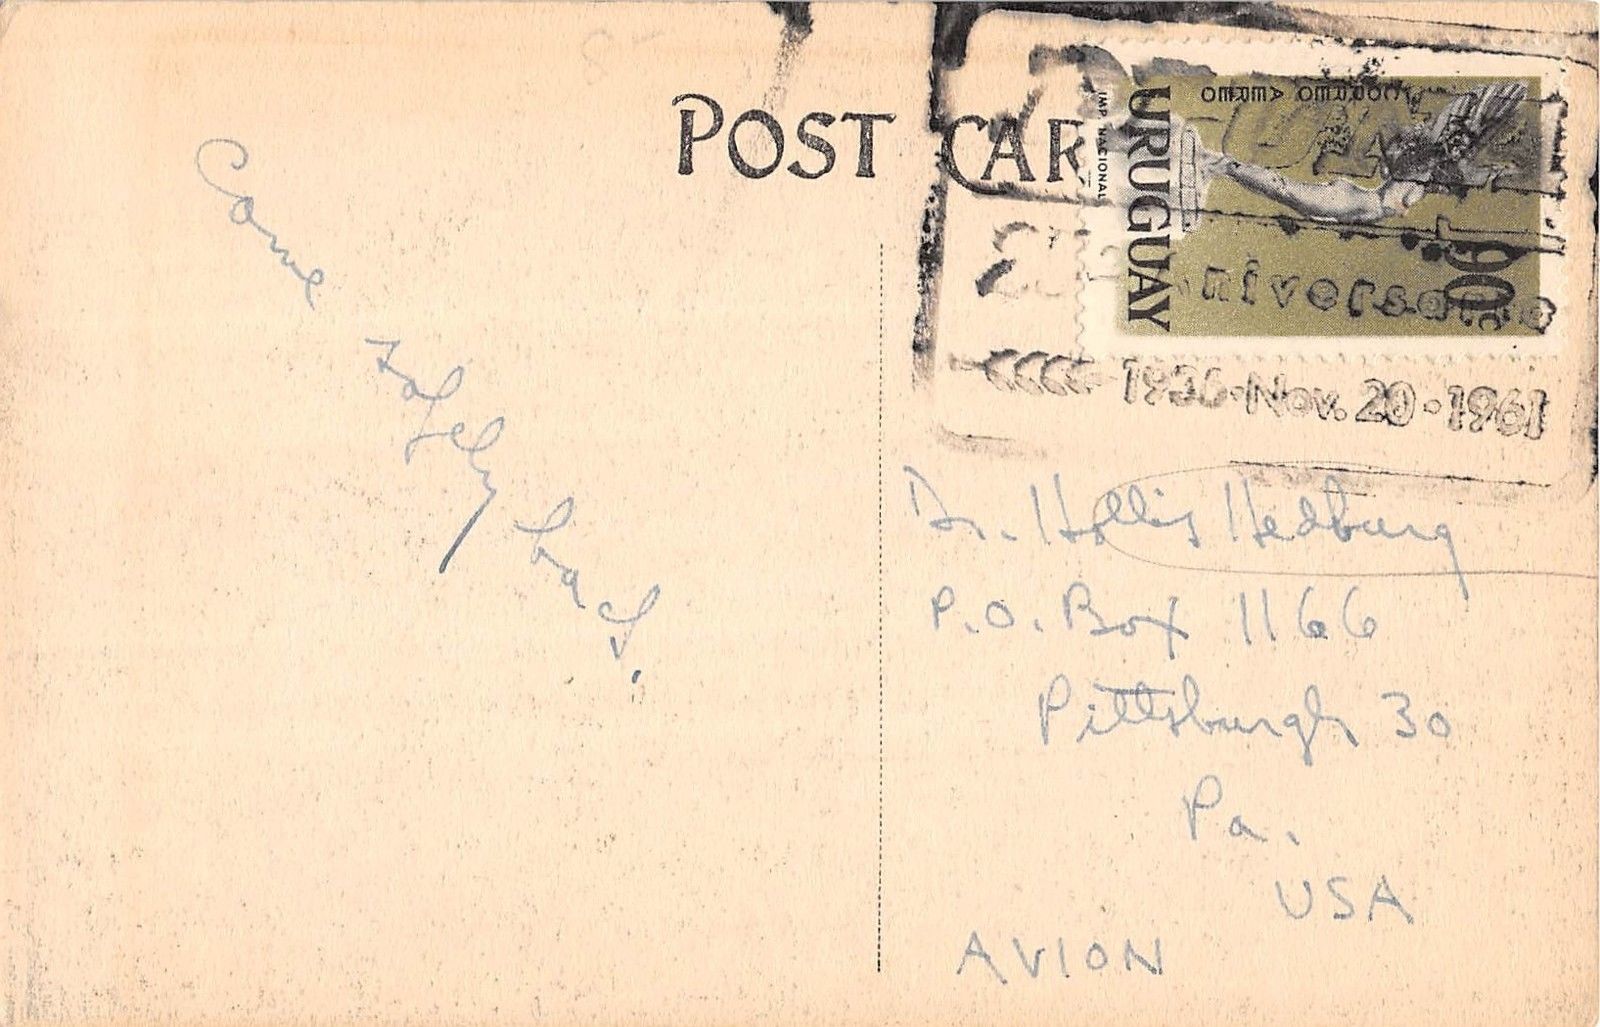 POST CAR
CORREO AEREO
IMP. NACIONAL
URUGUAY
90c
1936·Nov. 20·1961
Come safely back.
Dr. Hollis Hedburg
P.O. Box 1166
Pittsburgh 30
Pa.
USA
AVION